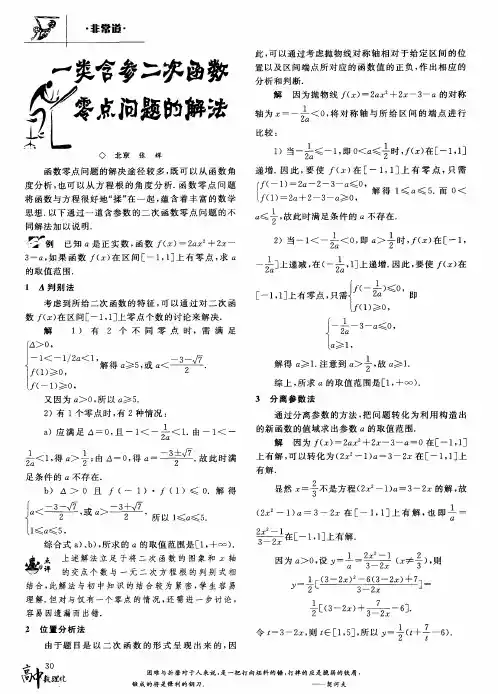 ·非常道·
一类含参二次函数
零点问题的解法
◇ 北京 张 辉
函数零点问题的解决途径较多,既可以从函数角
度分析,也可以从方程根的角度分析.函数零点问题
将函数与方程很好地“揉”在一起,蕴含着丰富的数学
思想.以下通过一道含参数的二次函数零点问题的不
同解法加以说明.
例 已知a是正实数,函数 f(x)=2ax²+2x-
3-a,如果函数 f(x)在区间[-1,1]上有零点,求a
的取值范围.
1 Δ判别法
考虑到所给二次函数的特征,可以通过对二次函
数 f(x)在区间[-1,1]上零点个数的讨论来解决.
解 1) 有 2 个 不 同 零 点 时, 需 满 足
{Δ>0,
-1<-1/2a<1,
f(1)≥0,
f(-1)≥0,
解得 a≥5,或 a<(-3-√7)/2.
又因为 a>0,所以 a≥5.
2) 有1个零点时,有2种情况:
a) 应满足 Δ=0,且-1<-1/2a<1.由-1<-
1/2a<1,得 a>1/2,由 Δ=0,得 a=(-3±√7)/2.故此时满
足条件的 a 不存在.
b) Δ>0 且 f(-1)·f(1)≤0. 解得
{a<(-3-√7)/2,或 a>(-3+√7)/2,
1≤a≤5,
所以 1≤a≤5.
综合式 a)、b),所求的 a 的取值范围是[1,+∞).
点评 上述解法立足于将二次函数的图象和 x 轴
的交点个数与一元二次方程根的判别式相
结合,此解法与初中知识的结合较为紧密,学生容易
理解.但对与仅有一个零点的情况,还需进一步讨论,
容易因遗漏而出错.
2 位置分析法
由于题目是以二次函数的形式呈现出来的,因
此,可以通过考虑抛物线对称轴相对于给定区间的位
置以及区间端点所对应的函数值的正负,作出相应的
分析和判断.
解 因为抛物线 f(x)=2ax²+2x-3-a 的对称
轴为 x=-1/2a<0,将对称轴与所给区间的端点进行
比较:
1) 当-1/2a≤-1,即 0<a≤1/2时,f(x)在[-1,1]
递增.因此,要使 f(x)在[-1,1]上有零点,只需
{f(-1)=2a-2-3-a≤0,
f(1)=2a+2-3-a≥0,
解得 1≤a≤5.而 0<
a≤1/2,故此时满足条件的 a 不存在.
2) 当-1<-1/2a<0,即 a>1/2时,f(x)在[-1,
-1/2a]上递减,在(-1/2a,1]上递增.因此,要使 f(x)在
[-1,1]上有零点,只需{f(-1/2a)≤0,
f(1)≥0,
即
{-1/2a-3-a≤0,
a≥1,
解得 a≥1.注意到 a>1/2,故 a≥1.
综上,所求 a 的取值范围是[1,+∞).
3 分离参数法
通过分离参数的方法,把问题转化为利用构造出
的新函数的值域求出参数 a 的取值范围.
解 因为 f(x)=2ax²+2x-3-a=0 在[-1,1]
上有解,可以转化为(2x²-1)a=3-2x 在[-1,1]上
有解.
显然 x=2/3不是方程(2x²-1)a=3-2x 的解,故
(2x²-1)a=3-2x 在[-1,1]上有解,也即1/a=
(2x²-1)/(3-2x)在[-1,1]上有解.
因为 a>0,设 y=1/a=(2x²-1)/(3-2x)(x≠2/3),则
y=1/2[((3-2x)²-6(3-2x)+7)/(3-2x)]=
1/2[(3-2x)+7/(3-2x)-6].
令 t=3-2x,则 t∈[1,5],所以 y=1/2(t+7/t-6).
30
高中数理化
困难与折磨对于人来说,是一把打向坯料的锤,打掉的应是脆弱的铁屑,
锻成的将是锋利的钢刀. ——契诃夫